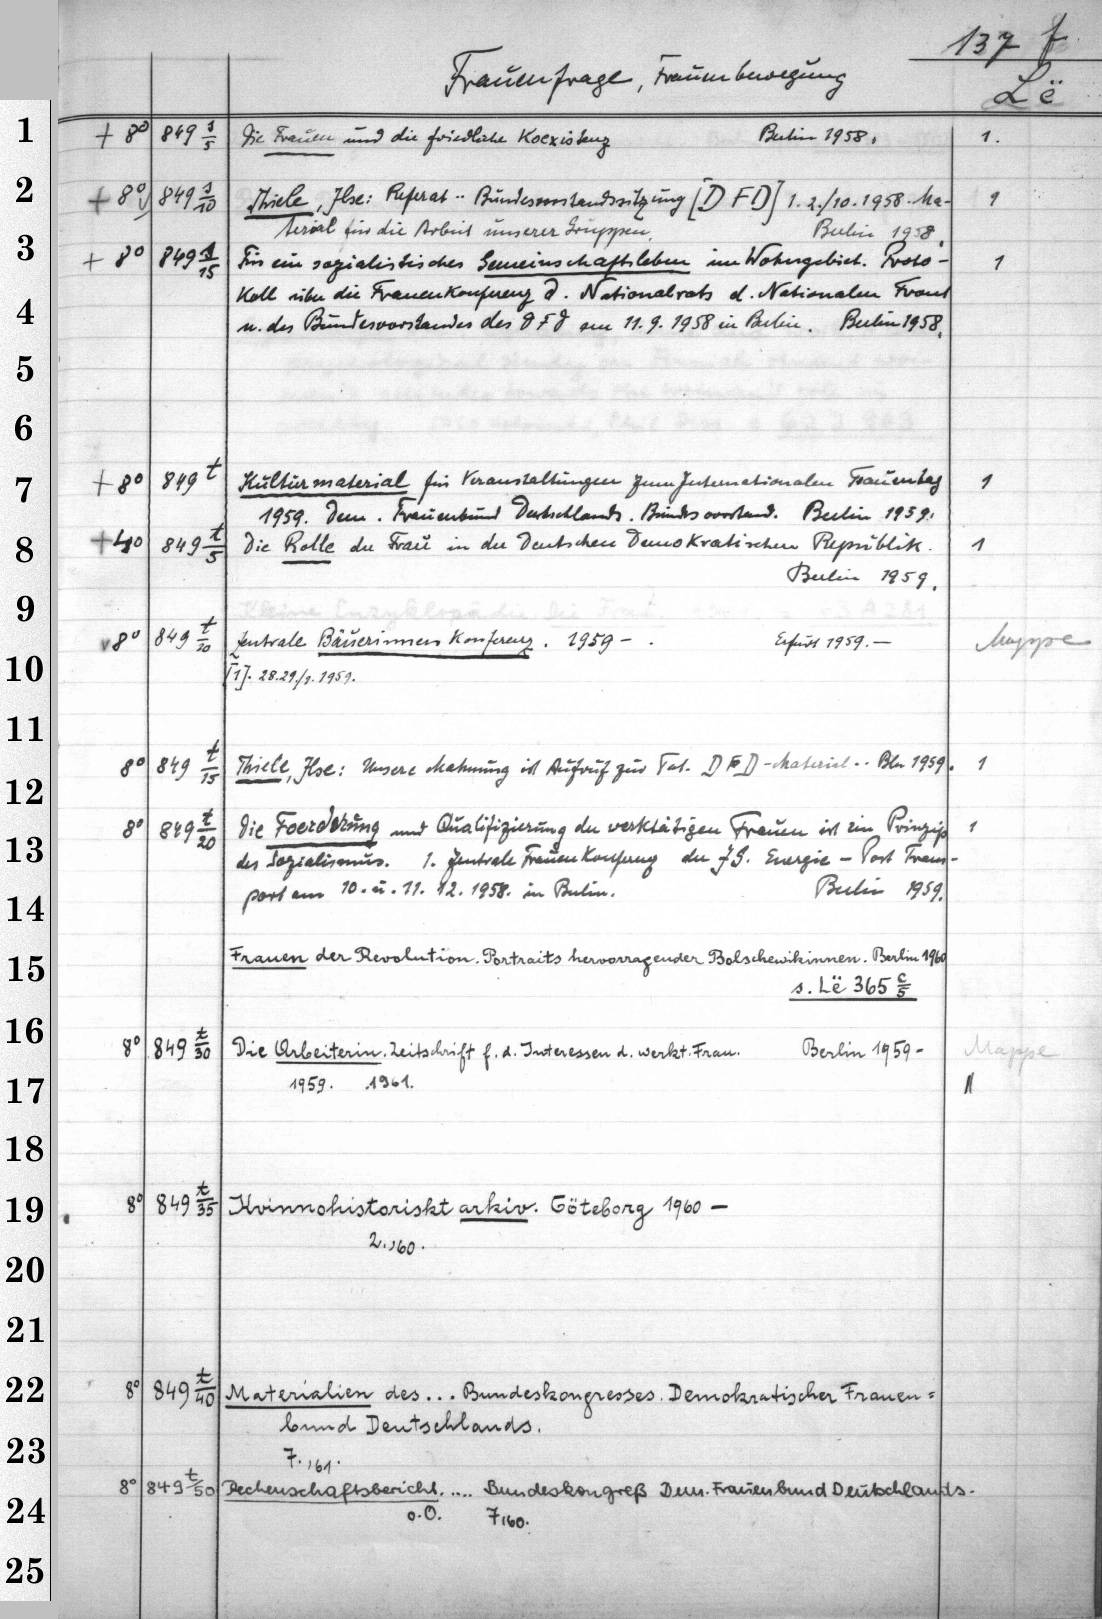 137 f
Frauenfrage, Frauenbewegung
Lë
1 + 8° 849 s/5 Die Frauen und die friedliche Koexistenz Berlin 1958. 1.
2 + 8° 849 s/10 Thiele, Ilse: Referat .. Bundesvorstandssitzung [DFD] 1. 2./10. 1958. Ma- 1
terial für die Arbeit unserer Gruppen. Berlin 1958.
3 + 8° 849 s/15 Für ein sozialistisches Gemeinschaftsleben im Wohngebiet. Proto- 1
koll über die Frauenkonferenz d. Nationalrats d. Nationalen Front
4 u. des Bundesvorstandes des DFD am 11. 9. 1958 in Berlin. Berlin 1958.
5
6
7 + 8° 849 t Kulturmaterial für Veranstaltungen zum Internationalen Frauentag 1
1959. Dem. Frauenbund Deutschlands. Bundesvorstand. Berlin 1959.
8 + 4° 849 t/5 Die Rolle der Frau in der Deutschen Demokratischen Republik. 1
Berlin 1959.
9
8° 849 t/10 Zentrale Bäuerinnen Konferenz. 1959 - . Erfurt 1959. - Mappe
10 [1]. 28.29./1. 1959.
11
8° 849 t/15 Thiele, Ilse: Unsere Mahnung ist Aufruf zur Tat. DFD - Material .. Bln 1959. 1
12
8° 849 t/20 Die Foerderung und Qualifizierung der werktätigen Frauen ist ein Prinzip 1
13 des Sozialismus. 1. Zentrale Frauenkonferenz der IG. Energie - Post Trans-
14 port am 10. u. 11. 12. 1958. in Berlin. Berlin 1959.
15 Frauen der Revolution. Portraits hervorragender Bolschewikinnen. Berlin 1960
s. Lë 365 c/5
16 8° 849 t/30 Die Arbeiterin. Zeitschrift f. d. Interessen d. werkt. Frau. Berlin 1959 - Mappe
17 1959. 1961.
18
19 8° 849 t/35 Kvinnohistoriskt arkiv. Göteborg 1960 -
2.,60.
20
21
22 8° 849 t/40 Materialien des ... Bundeskongresses. Demokratischer Frauen=
bund Deutschlands.
23 7.,61.
8° 849 t/50 Rechenschaftsbericht. .... Bundeskongreß Dem. Frauenbund Deutschlands.
24 o.O. 7,60.
25